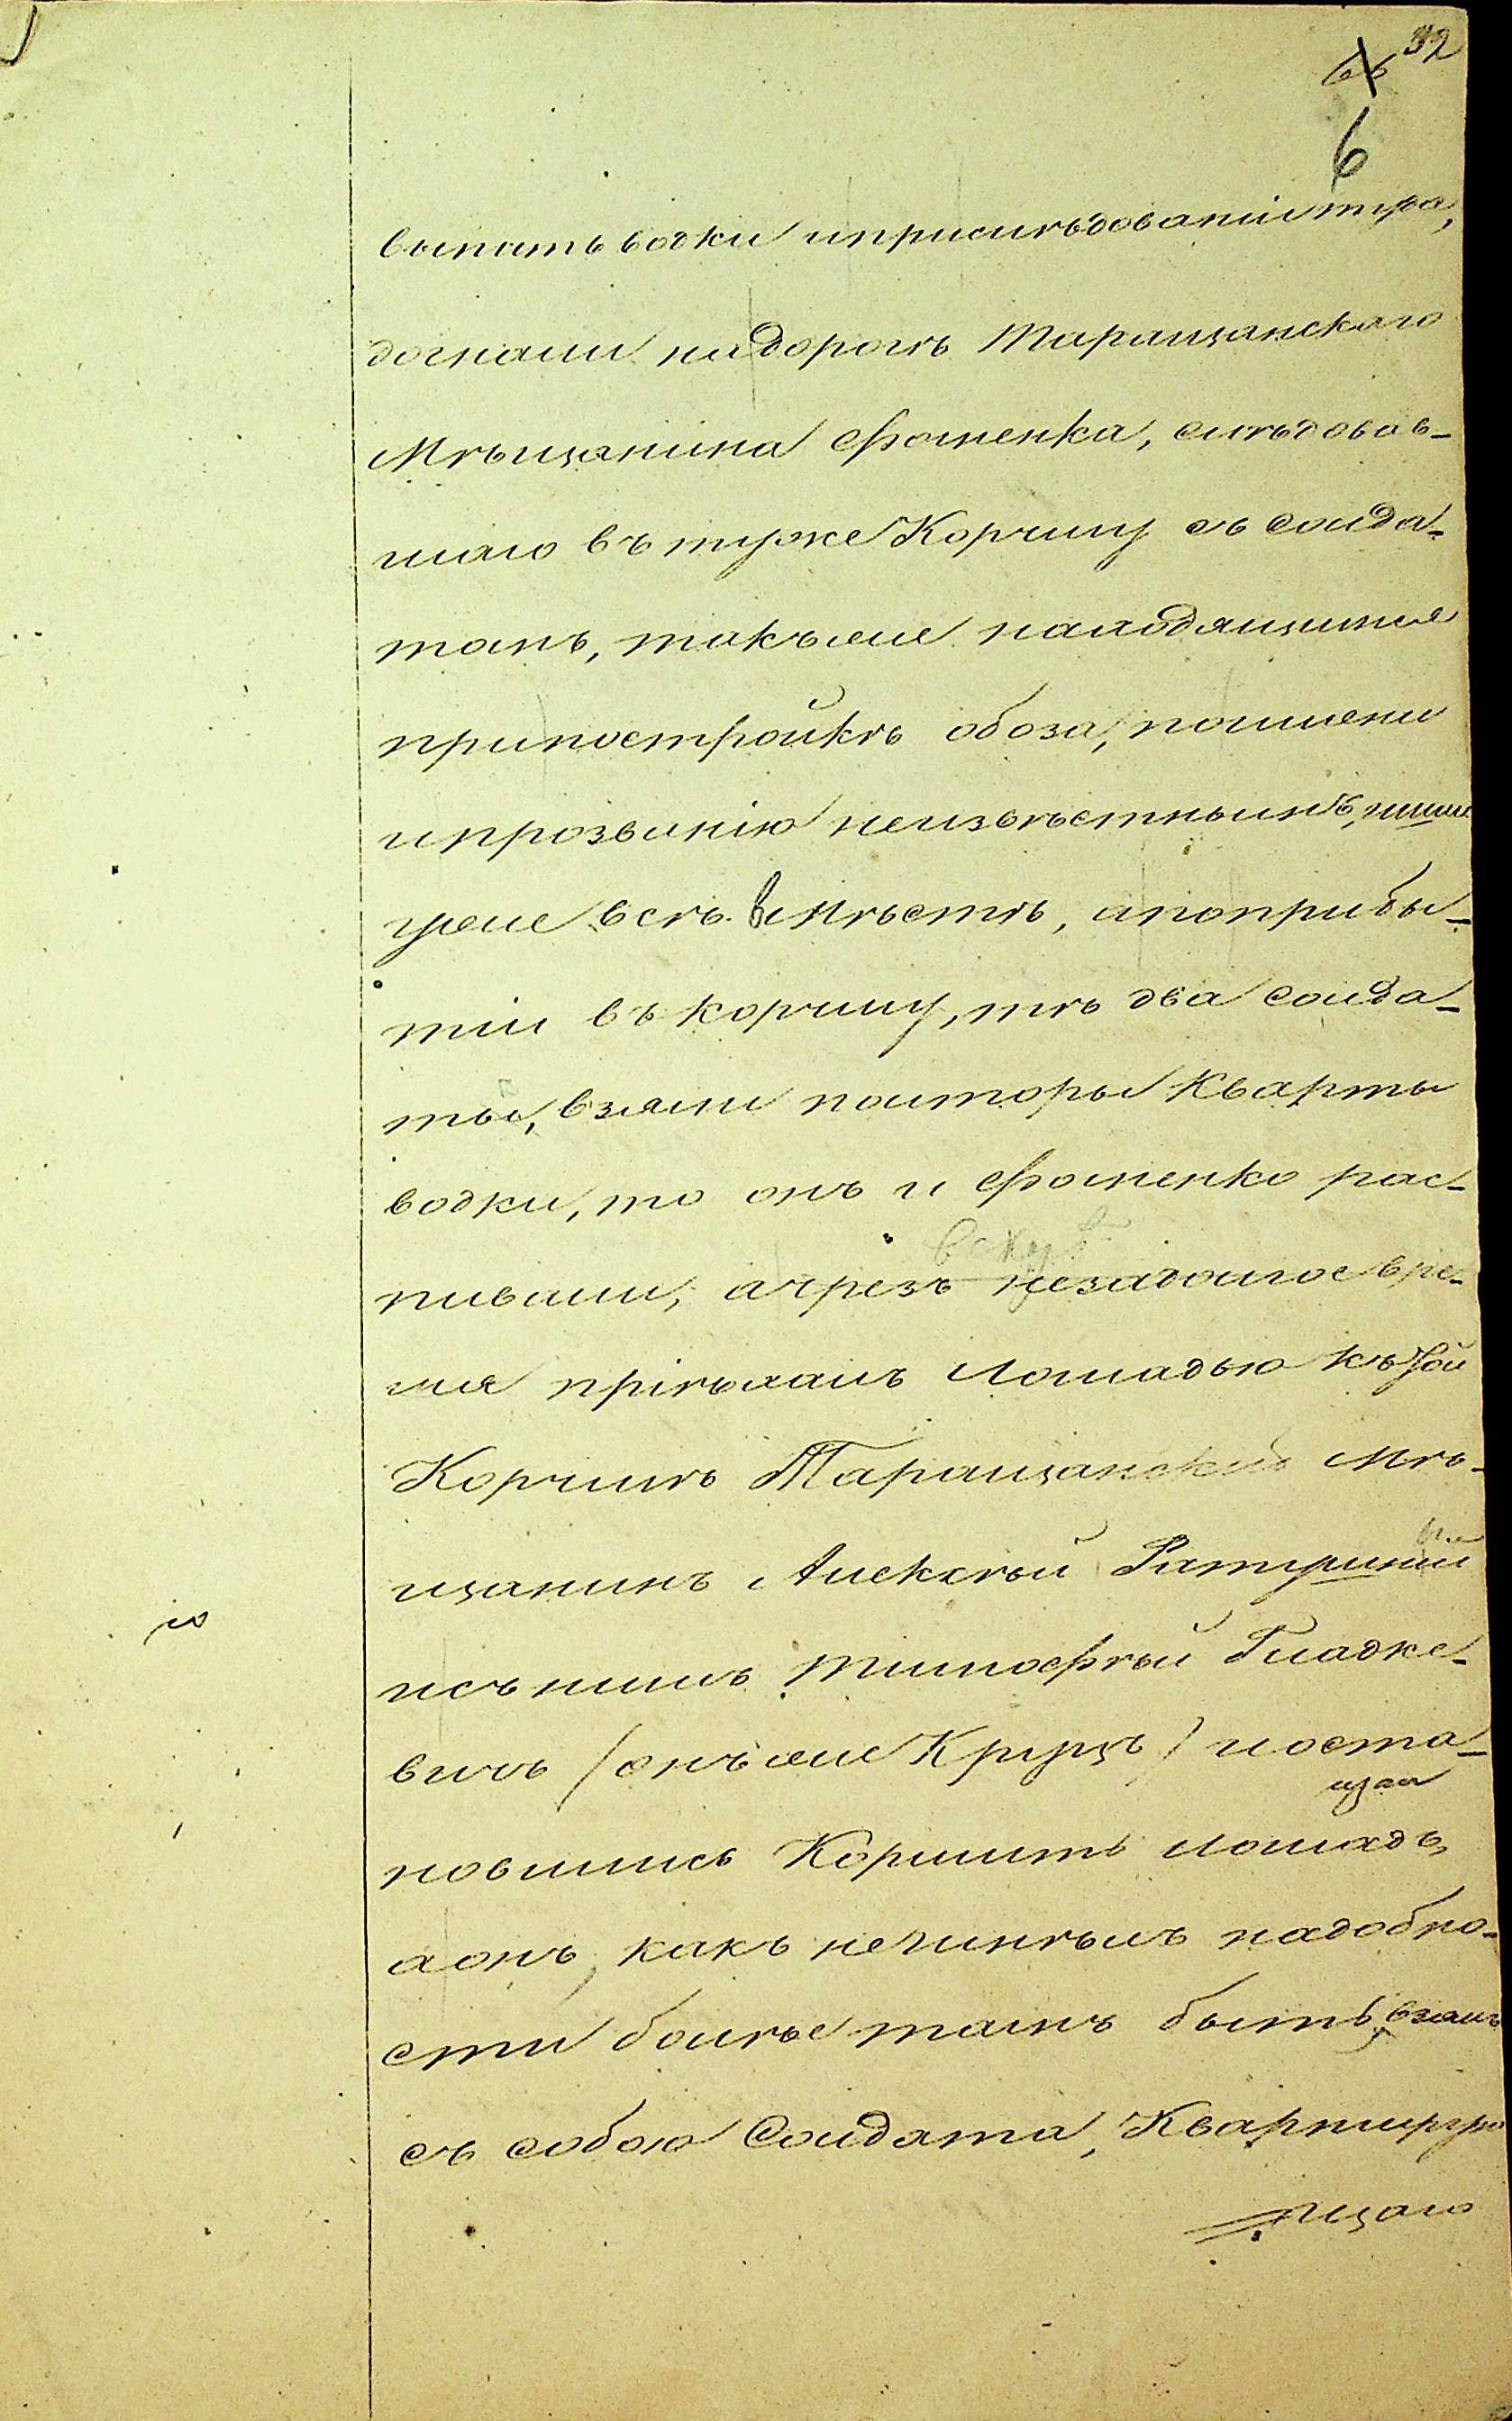 32
66
6
выпить водки и при слѣдованіи туда,
догнали на дорогѣ Таращанскаго
Мѣщанина Фоменка, слѣдовав-
шаго въ туже Корчму съ солда-
томъ, такъже находящимся
при постройкѣ обоза, по имени
и прозванію неизвѣстнымъ, шли
уже всѣ вмѣстѣ, а по прибы-
тіи въ корчму, тѣ два солда-
ты, взяли полторы Кварты
водки, то онъ и Фоменко рас-
вскорѣ
пивали, а чрезъ незадолгое вре-
мя пріѣхалъ Лошадью къ той
Корчмѣ Таращанскій Мѣ-
щанинъ Алексѣй Ратушный
и съ нимъ Тимофѣй Гладке-
вичъ (онъ же Круцъ) и оста-
новились Кормить лошадь,
а онъ, какъ не имѣлъ надобно-
сти болѣе тамъ быть, взялъ
съ собою Солдата, Квартирую
щаго